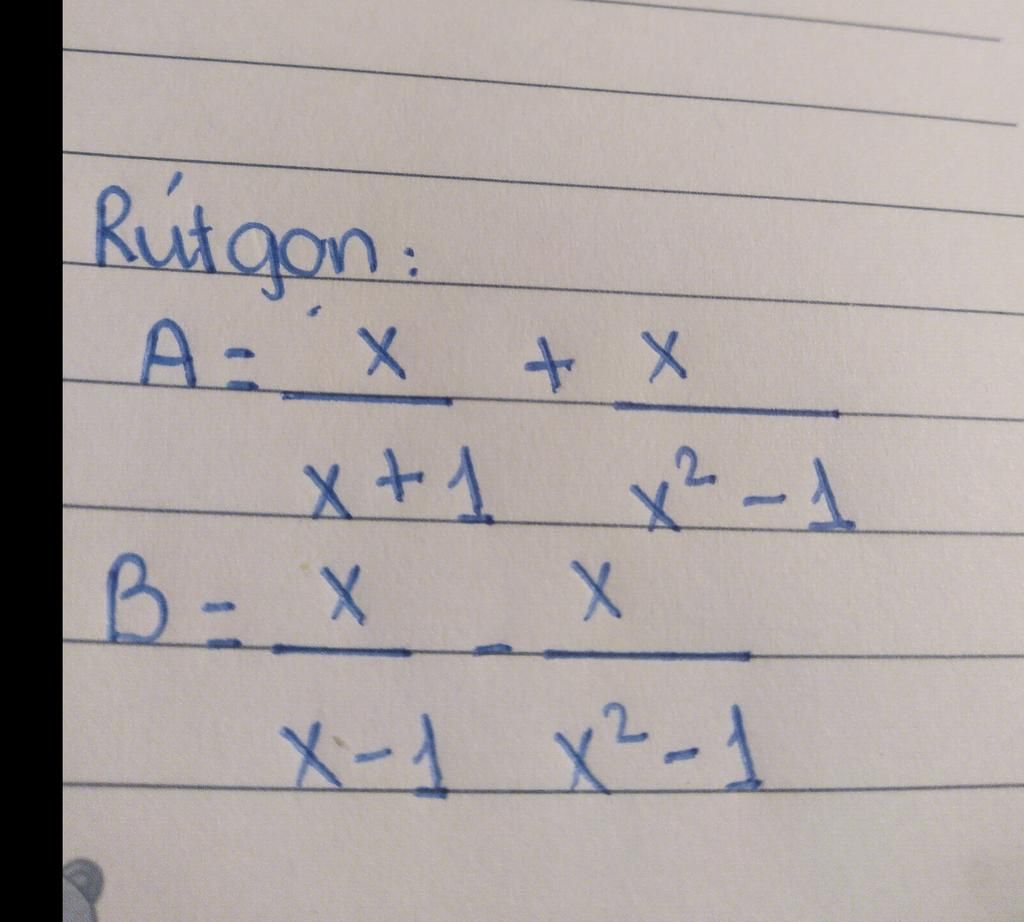 Rút gọn:
A = x/(x+1) + x/(x²-1)
B = x/(x-1) - x/(x²-1)